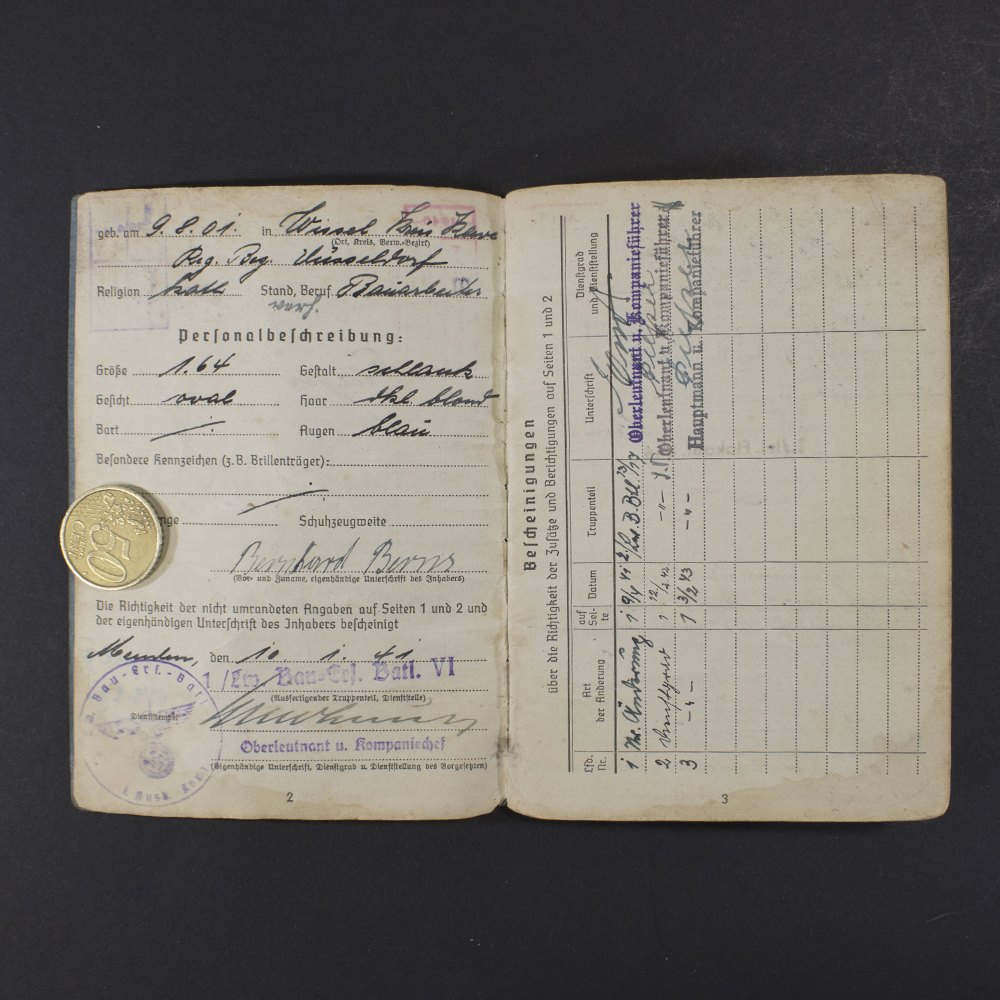 geb. am 9.8.01. in Wissel Kreis Kleve
(Ort, Kreis, Verw.-Bezirk)
Reg. Bez. Düsseldorf
Religion kath Stand, Beruf Bauarbeiter
verh.
Personalbeschreibung:
Größe 1.64 Gestalt schlank
Gesicht oval Haar dkl. blond
Bart ./. Augen blau
Besondere Kennzeichen (z.B. Brillenträger):
./.
nge Schuhzeugweite
Bernhard Berns
(Vor- und Zuname, eigenhändige Unterschrift des Inhabers)
Die Richtigkeit der nicht umrandeten Angaben auf Seiten 1 und 2 und
der eigenhändigen Unterschrift des Inhabers bescheinigt
den 10. 1. 41
1./Ers. Bau-Ers. Batl. VI
(Ausfertigender Truppenteil, Dienststelle)
Bau-Ers.-Batl
Dienststempel
Oberleutnant u. Kompaniechef
(Eigenhändige Unterschrift, Dienstgrad u. Dienststellung des Vorgesetzten)
2
50
CENT
Bescheinigungen
über die Richtigkeit der Zusätze und Berichtigungen auf Seiten 1 und 2
Lfd. Nr. Art der Änderung auf Seite Datum Truppenteil Unterschrift Dienstgrad und Dienststellung
1 Änderung 1 9/4 41 Oberleutnant u. Kompanieführer
2 Dienstgrad 1 12/2 42 -"- Oberleutnant u. Kompanieführer
3 -"- 1 3/2 43 -"- Hauptmann u. Kompanieführer
3